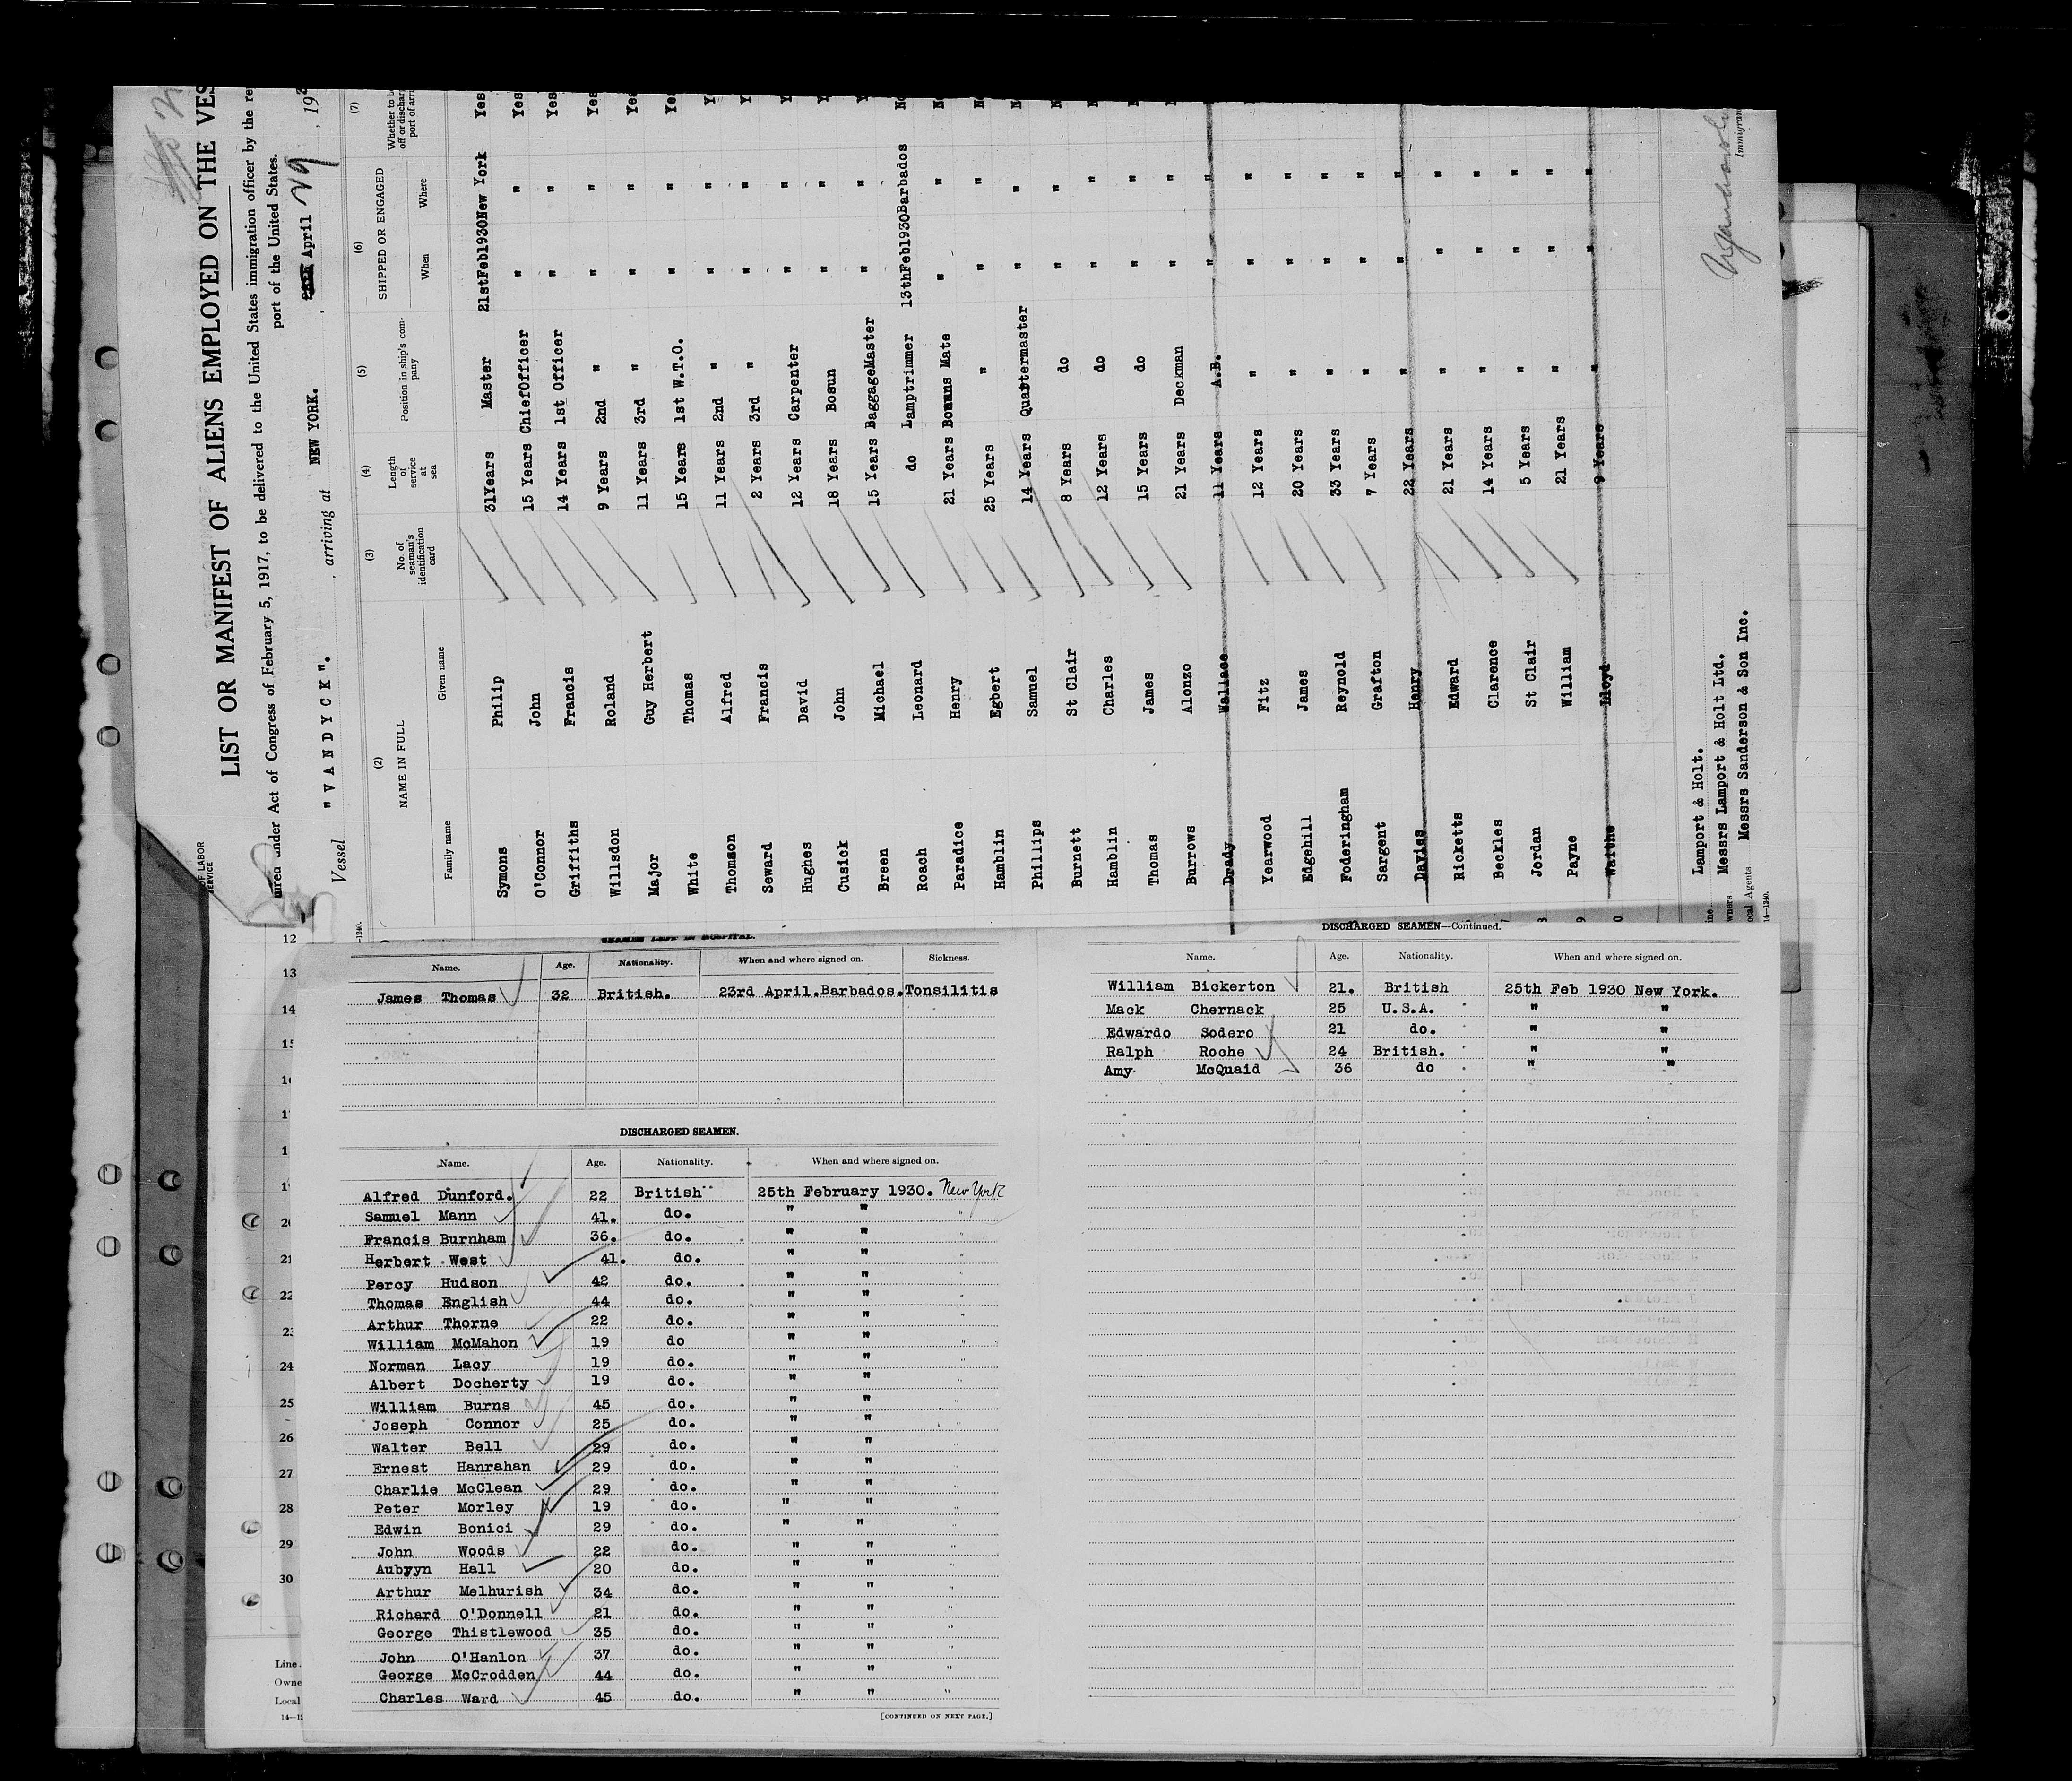 LIST OR MANIFEST OF ALIENS EMPLOYED ON THE VES
under Act of Congress of February 5, 1917, to be delivered to the United States immigration officer by the re
port of the United States.
Vessel "VANDYCK". , arriving at NEW YORK. , April 29 , 19
OF LABOR
(2) (3) (4) (5) (6) (7)
NAME IN FULL No. of seaman's identification card Length of service at sea Position in ship's company SHIPPED OR ENGAGED
Family name Given name When Where
Symons Philip 31Years Master 21stFeb1930New York Yes
O'Connor John 15 Years ChiefOfficer " " Yes
Griffiths Francis 14 Years 1st Officer " " Yes
Willsdon Roland 9 Years 2nd " " " Yes
Major Guy Herbert 11 Years 3rd " " " Yes
White Thomas 15 Years 1st W.T.O. " " Yes
Thomson Alfred 11 Years 2nd " " "
Seward Francis 2 Years 3rd " " "
Hughes David 12 Years Carpenter " "
Cusick John 18 Years Bosun " "
Breen Michael 15 Years BaggageMaster " "
Roach Leonard do Lamptrimmer 13thFeb1930Barbados
Paradice Henry 21 Years Bosuns Mate " "
Hamblin Egbert 25 Years " " "
Phillips Samuel 14 Years Quartermaster " "
Burnett St Clair 8 Years do " "
Hamblin Charles 12 Years do " "
Thomas James 15 Years do " "
Burrows Alonzo 21 Years Deckman " "
Drady Wallace 11 Years A.B. " "
Yearwood Fitz 12 Years " " "
Edgehill James 20 Years " " "
Foderingham Reynold 33 Years " " "
Sargent Grafton 7 Years " " "
Davies Henry 22 Years " " "
Ricketts Edward 21 Years " " "
Beckles Clarence 14 Years " " "
Jordan St Clair 5 Years " " "
Payne William 21 Years " " "
Waithe Lloyd 9 Years " " "
Lamport & Holt.
Messrs Lamport & Holt Ltd.
Messrs Sanderson & Son Inc.
14—1240.
12
13
14
20
21
22
24
25
26
27
28
29
30
Line
Owne
Local
SEAMEN LEFT IN HOSPITAL.
Name. Age. Nationality. When and where signed on. Sickness.
James Thomas 32 British. 23rd April.Barbados.Tonsilitis
DISCHARGED SEAMEN.
Name. Age. Nationality. When and where signed on.
Alfred Dunford. 22 British 25th February 1930. New York
Samuel Mann 41. do. " " "
Francis Burnham 36. do. " " "
Herbert West 41. do. " " "
Percy Hudson 42 do. " " "
Thomas English 44 do. " " "
Arthur Thorne 22 do. " " "
William McMahon 19 do " " "
Norman Lacy 19 do. " " "
Albert Docherty 19 do. " " "
William Burns 45 do. " " "
Joseph Connor 25 do. " " "
Walter Bell 29 do. " " "
Ernest Hanrahan 29 do. " " "
Charlie McClean 29 do. " " "
Peter Morley 19 do. " " "
Edwin Bonici 29 do. " " "
John Woods 22 do. " " "
Aubyyn Hall 20 do. " " "
Arthur Melhurish 34 do. " " "
Richard O'Donnell 21 do. " " "
George Thistlewood 35 do. " " "
John O'Hanlon 37 do. " " "
George McCrodden 44 do. " " "
Charles Ward 45 do. " " "
[CONTINUED ON NEXT PAGE.]
DISCHARGED SEAMEN—Continued.
Name. Age. Nationality. When and where signed on.
William Bickerton 21. British 25th Feb 1930 New York.
Mack Chernack 25 U.S.A. " "
Edwardo Sodero 21 do. " "
Ralph Roche 24 British. " "
Amy McQuaid 36 do " "